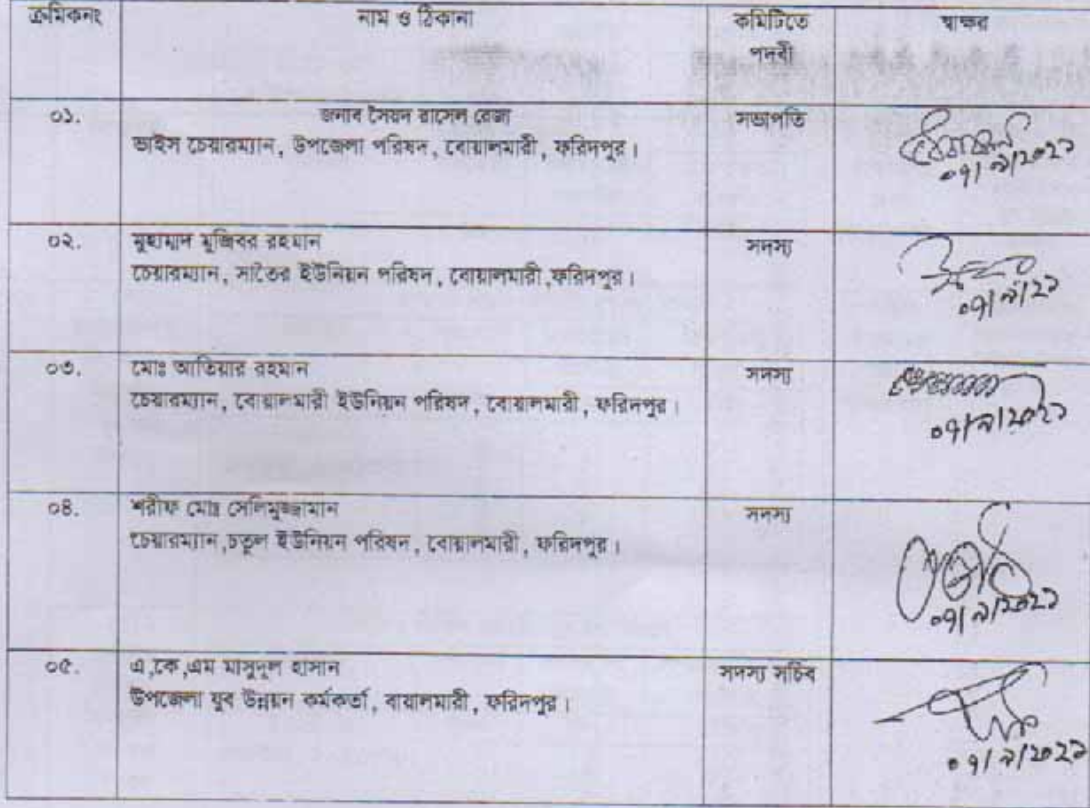 ক্রমিকনং নাম ও ঠিকানা কমিটিতে পদবী স্বাক্ষর
০১. জনাব সৈয়দ রাসেল রেজা সভাপতি
ভাইস চেয়ারম্যান, উপজেলা পরিষদ, বোয়ালমারী, ফরিদপুর।
০৭/৯/২০২১
০২. মুহাম্মদ মুজিবর রহমান সদস্য
চেয়ারম্যান, সাতৈর ইউনিয়ন পরিষদ, বোয়ালমারী,ফরিদপুর।
০৭/৯/২১
০৩. মোঃ আতিয়ার রহমান সদস্য
চেয়ারম্যান, বোয়ালমারী ইউনিয়ন পরিষদ, বোয়ালমারী, ফরিদপুর।
০৭/৯/২০২১
০৪. শরীফ মোঃ সেলিমুজ্জামান সদস্য
চেয়ারম্যান,চতুল ইউনিয়ন পরিষদ, বোয়ালমারী, ফরিদপুর।
০৭/৯/২০২১
০৫. এ,কে,এম মাসুদুল হাসান সদস্য সচিব
উপজেলা যুব উন্নয়ন কর্মকর্তা, বায়ালমারী, ফরিদপুর।
০৭/৯/২০২১